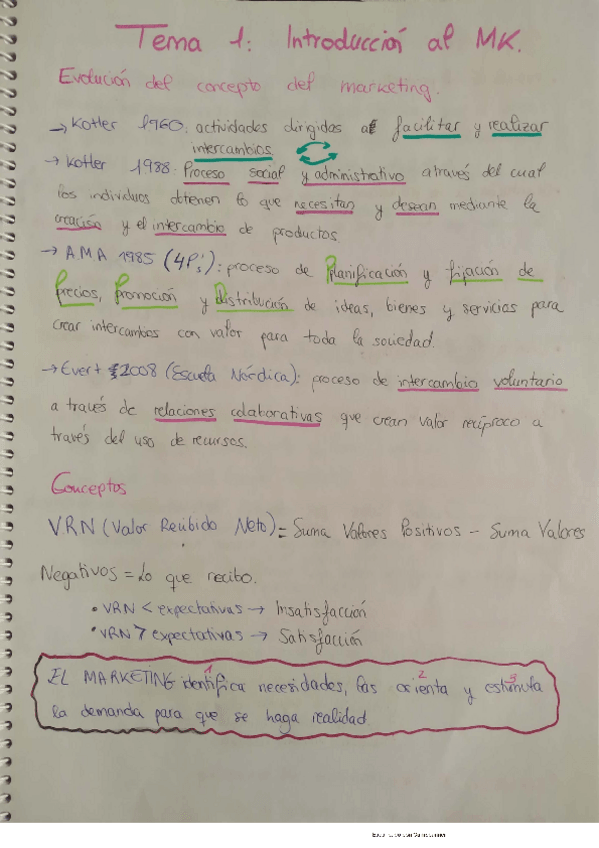 Tema 1: Introducción al MK.
Evolución del concepto del marketing.
→ Kotler 1960: actividades dirigidas a facilitar y realizar
intercambios
→ Kotler 1988: Proceso social y administrativo através del cual
los individuos obtienen lo que necesitan y desean mediante la
creación y el intercambio de productos.
→ A.M.A 1985 (4P's): proceso de Planificación y fijación de
Precios, Promoción y Distribución de ideas, bienes y servicios para
crear intercambios con valor para toda la sociedad.
→ Evert 2008 (Escuela Nórdica): proceso de intercambio voluntario
a través de relaciones colaborativas que crean valor recíproco a
través del uso de recursos.
Conceptos
V.R.N (Valor Recibido Neto) = Suma Valores Positivos - Suma Valores
Negativos = Lo que recibo.
• VRN < expectativas → Insatisfacción
• VRN > expectativas → Satisfacción
1 2 3
EL MARKETING identifica necesidades, las orienta y estimula
la demanda para que se haga realidad